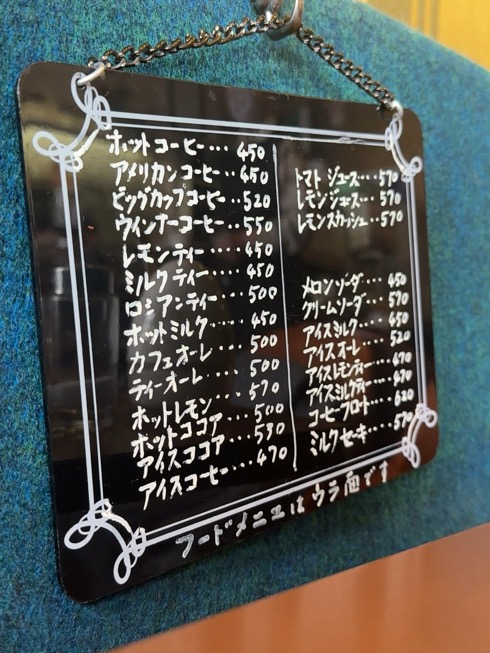 ホットコーヒー… 450
アメリカンコーヒー… 450
ビッグカップコーヒー… 520
ウィンナーコーヒー… 550
レモンティー… 450
ミルクティー… 450
ロシアンティー… 500
ホットミルク… 450
カフェオーレ… 500
ティーオーレ… 500
ホットレモン… 570
ホットココア… 500
アイスココア… 530
アイスコーヒー… 470
トマトジュース… 570
レモンジュース… 570
レモンスカッシュ… 570
メロンソーダ… 450
クリームソーダ… 570
アイスミルク… 450
アイスオーレ… 520
アイスレモンティー… 470
アイスミルクティー… 470
コーヒーフロート… 620
ミルクセーキ… 570
フードメニエはウラ面です